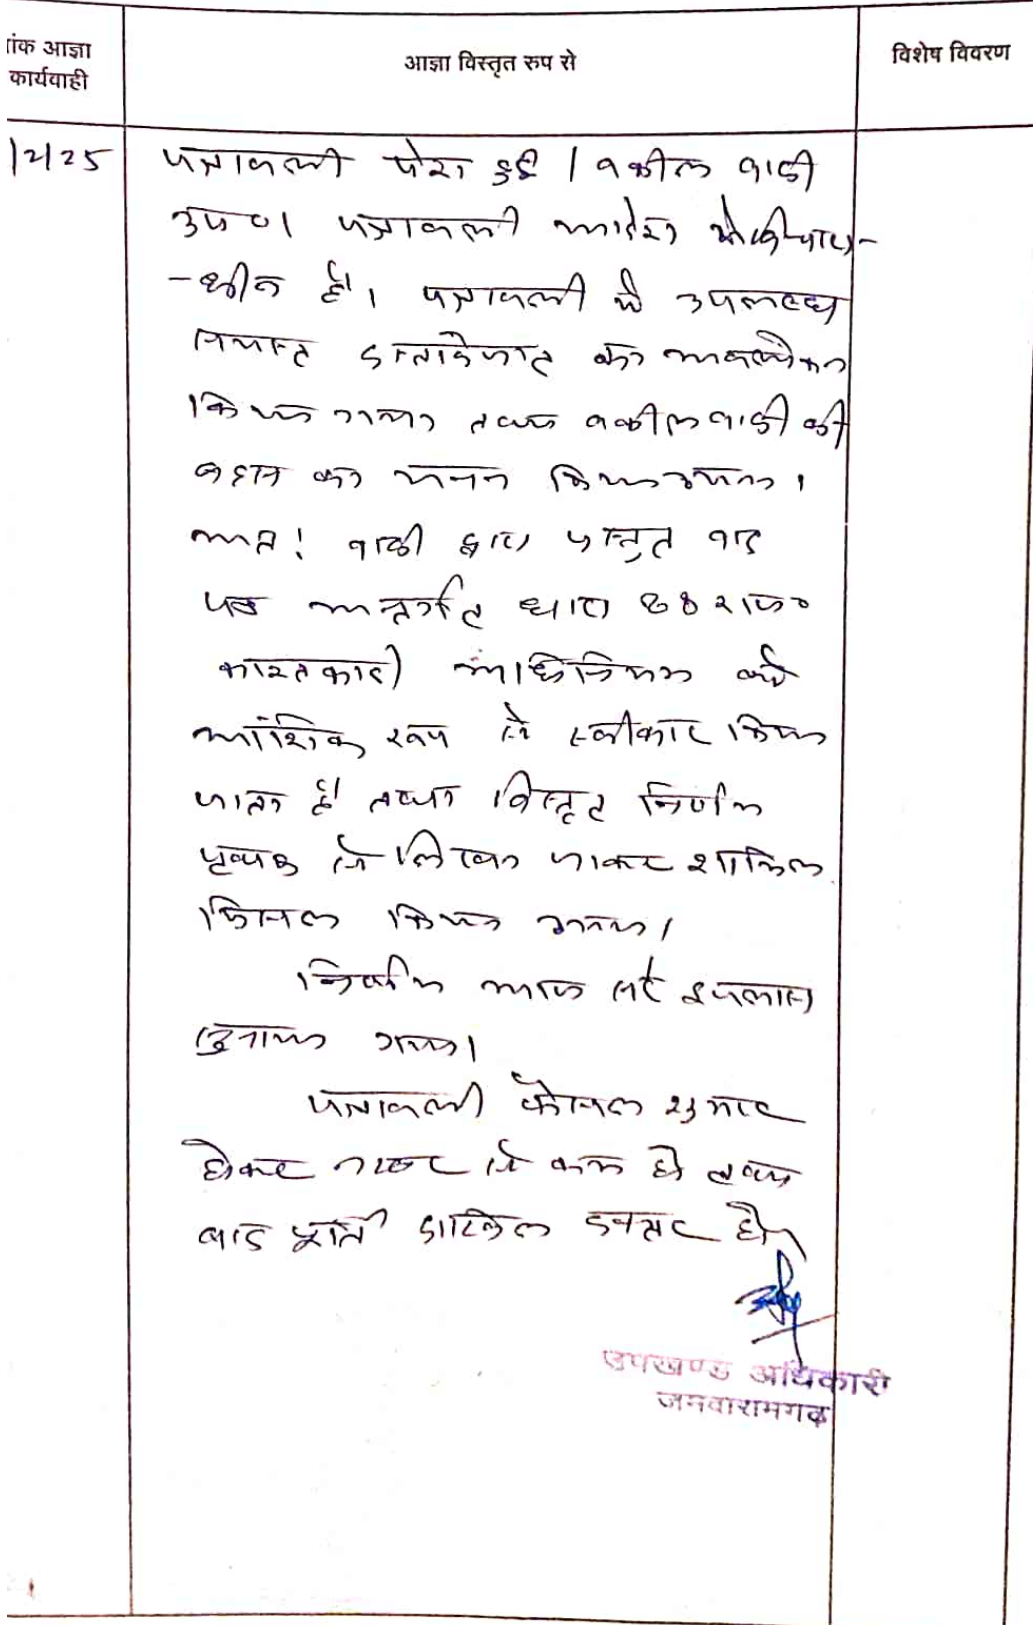 ांक आज्ञा
कार्यवाही
आज्ञा विस्तृत रुप से
विशेष विवरण
1२1२5
पत्रावली पेश हुई । वकील वादी
उप० । पत्रावली आदेश
-धीन है। पत्रावली में उपलब्ध
समस्त दस्तावेजात का अवलोकन
किया गया तथा वकील वादी की
बहस का मनन किया गया ।
अत: वादी द्वारा प्रस्तुत वाद
पत्र अन्तर्गत धारा 88 राज०
काश्तकारी अधिनियम को
आंशिक रूप से स्वीकार किया
जाता है तथा विस्तृत निर्णय
पृथक से लिखा जाकर शामिल
मिसल किया गया।
निर्णय आज सरे इजलास
सुनाया गया।
पत्रावली फैसल शुमार
होकर नम्बर से कम हो तथा
बाद पूर्ति दाखिल दफ्तर हो।
उपखण्ड अधिकारी
जमवारामगढ़